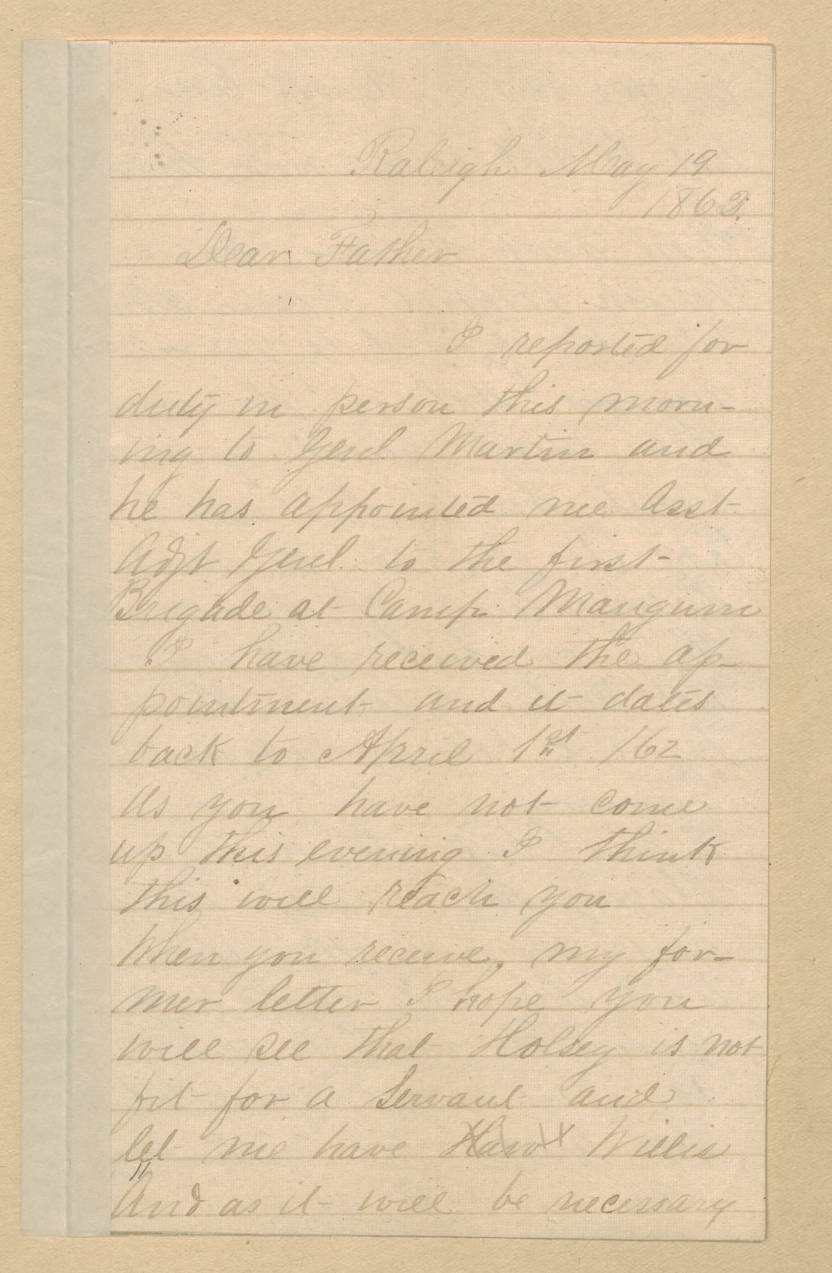 Raleigh May 19
1862.
Dear Father
I reported for
duty in person this morn-
ing to Genl Martin and
he has appointed me Asst
Adjt Genl. to the first
Brigade at Camp Mangum
I have received the ap-
pointment and it dates
back to April 1st /62
As you have not come
up this evening I think
this will reach you
When you receive, my for-
mer letter I hope you
will see that Holsey is not
fit for a Servant and
let me have Willis
And as it will be necessary